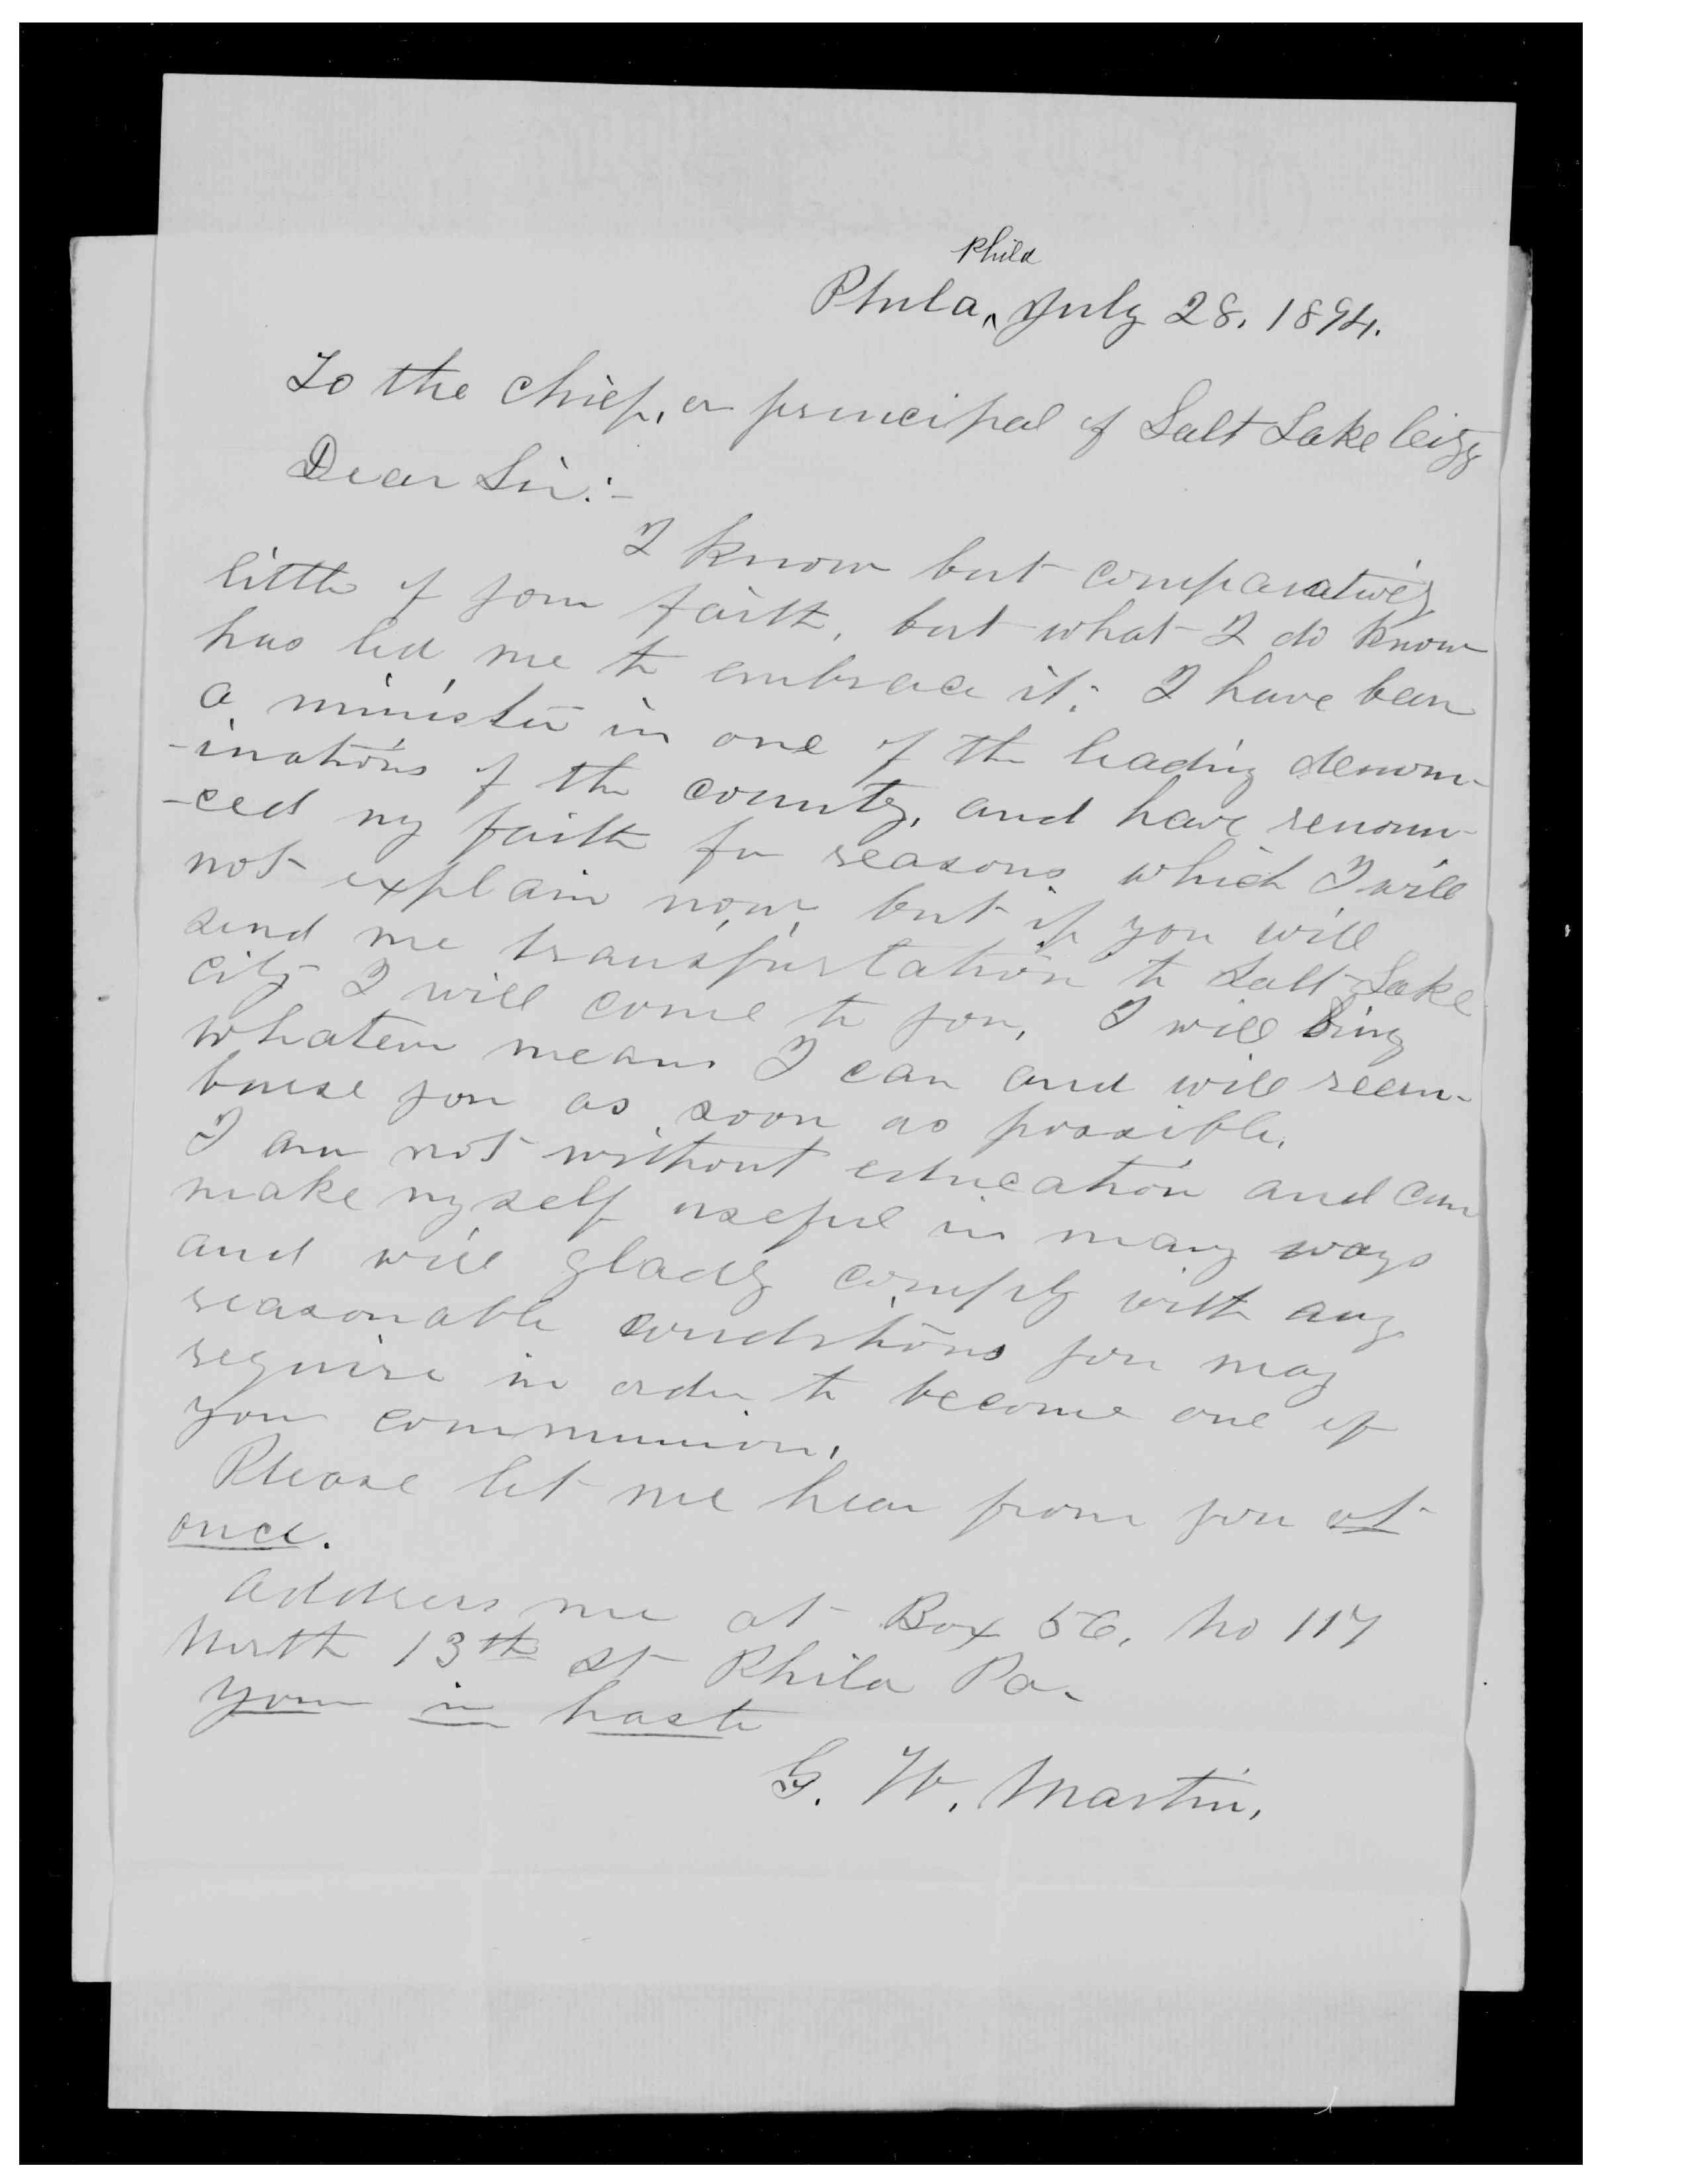 Phila
Phila, July 28, 1894.
To the Chief, or principal of Salt Lake City
Dear Sir:-
I know but comparatively
little of your faith, but what I do know
has led me to embrace it; I have been
a minister in one of the leading denom-
-inations of the country, and have renoun-
-ced my faith for reasons which I will
not explain now, but if you will
send me transportation to Salt Lake
City I will come to you, I will bring
whatever means I can and will reem-
burse you as soon as possible.
I am not without education and can
make myself useful in many ways
and will gladly comply with any
reasonable conditions you may
require in order to become one of
your communion.
Please let me hear from you at
once.
Address me at Box 56, No 117
North 13th St Phila Pa.
Your in haste
G. W. Martin,